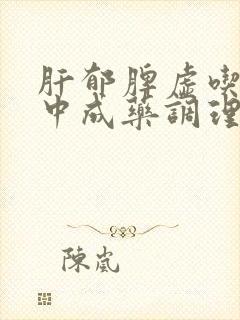 肝郁脾虚喫
中成藥調理
陳嵐